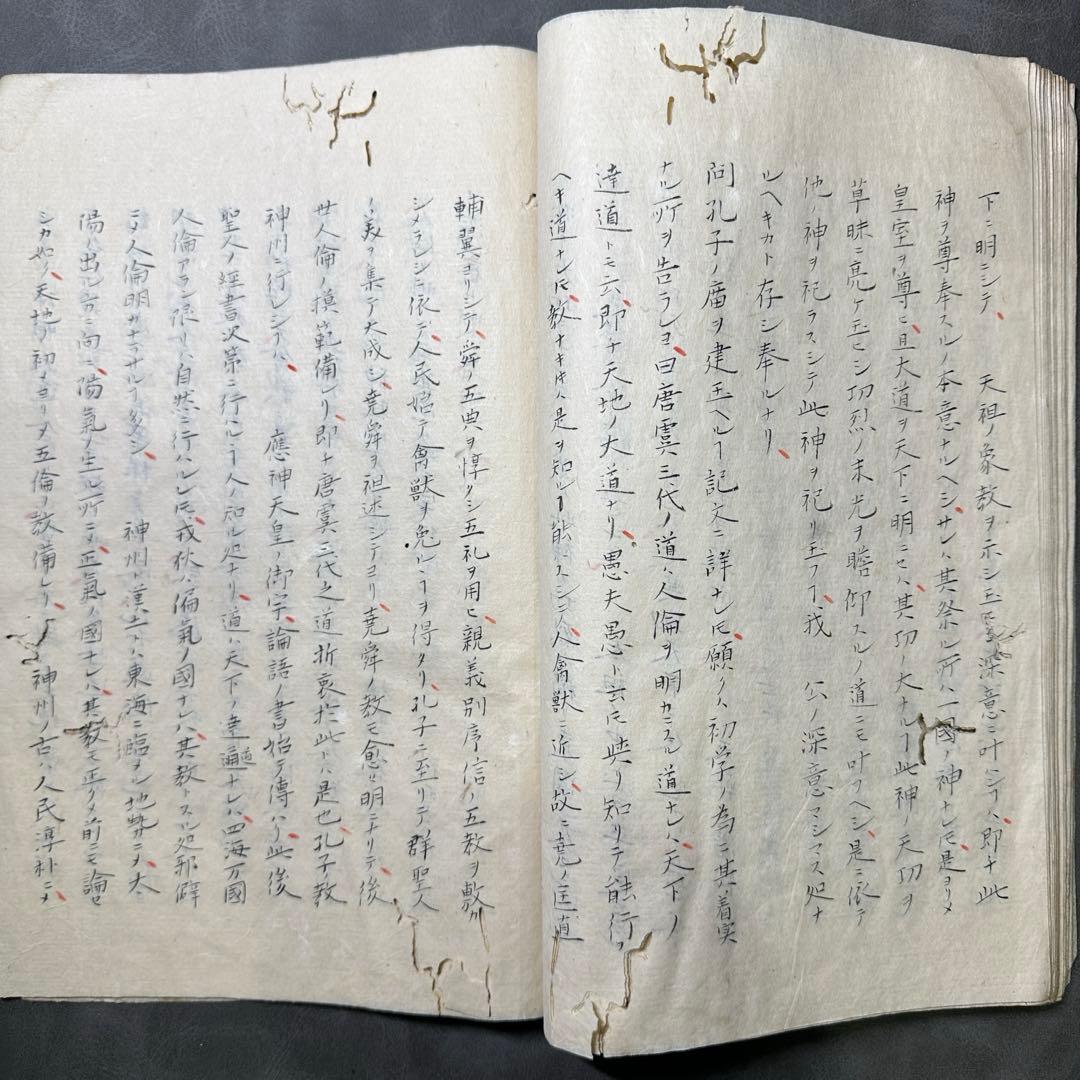 下ニ明ニシテ、 天祖ノ象教ヲ示シ玉ヒシ深意ニ叶ニ、即チ此
神ヲ尊奉スルノ本意ナルヘシ、サレハ其祭ル所ハ一國ノ神ナレ𪜈、是ヨリメ
皇室ヲ尊ヒ、且大道ヲ天下ニ明ニセハ、其功ノ大ナルヿ此神ノ天功ヲ
草昧ニ亮ケ玉ヒシ功烈ノ末光ヲ瞻仰スルノ道ニモ叶フヘシ、是ニ依テ
他ノ神ヲ祀ラスシテ此神ヲ祀リ玉フヿ、我 公ノ深意マシマス処ナ
ルヘキカト存シ奉ルナリ、
問孔子ノ廟ヲ建玉ヘルヿ記文ニ詳ナレ𪜈、願クハ初学ノ為ニ其着実
ナル所ヲ告ラレヨ、曰唐虞三代ノ道ハ人倫ヲ明カニスル道ナレハ、天下ノ
達道トモ云、即チ天地ノ大道ナリ、愚夫愚トモ𪜈與リ知リテ能行フ
ヘキ道ナレ𪜈、教ナキ時ハ是ヲ知ルヿ能ハスシテ、人禽獣ニ近シ、故ニ堯ノ匡直
輔翼ヨリシテ、舜ノ五典ヲ惇クシ五礼ヲ用ヒ、親義別序信ノ五教ヲ敷カ
シメラレシニ依テ、人民始テ禽獣ヲ免ルヽヿヲ得タリ、孔子ニ至リテ群聖人
ノ美ヲ集テ大成シ、堯舜ヲ祖述シテヨリ、堯舜ノ教モ愈明ニナリテ、後
世人倫ノ模範備レリ、即チ唐虞三代之道折衷於此トハ是也、孔子教
神州ニ行レシヿハ、 應神天皇ノ御宇、論語ノ書始テ傳ハリ、此後
聖人ノ經書次第ニ行ハルヽヿ人ノ知ル処ナリ、道ハ天下ノ達道ナレハ、四海万國
人倫アラン限リハ自然ニ行ハルレ𪜈、戎狄ハ偏氣ノ國ナレハ、其教トスル処邪僻
ニメ人倫明カナラサルヿ多シ、 神州ト漢土トハ東海ニ臨タル地勢ニメ、太
陽ノ出ル方ニ向ヒ、陽氣ノ生ル所ニメ、正氣ノ國ナレハ、其教モ正クメ前ニモ論セ
シカ如ク、天地ノ初ヨリメ五倫ノ教備レリ、 神州ノ古ハ人民淳朴ニメ、